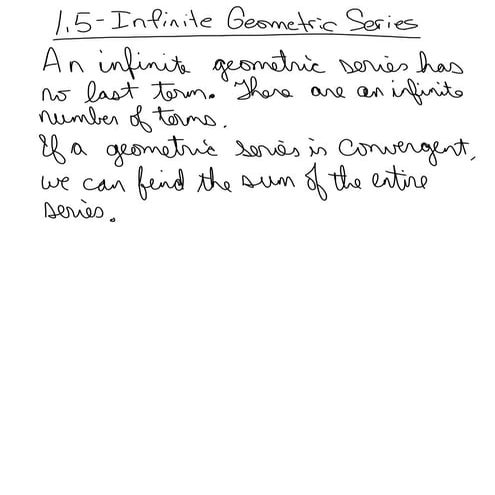 1.5 - Infinite Geometric Series
An infinite geometric series has
no last term. There are an infinite
number of terms.
If a geometric series is convergent,
we can find the sum of the entire
series.